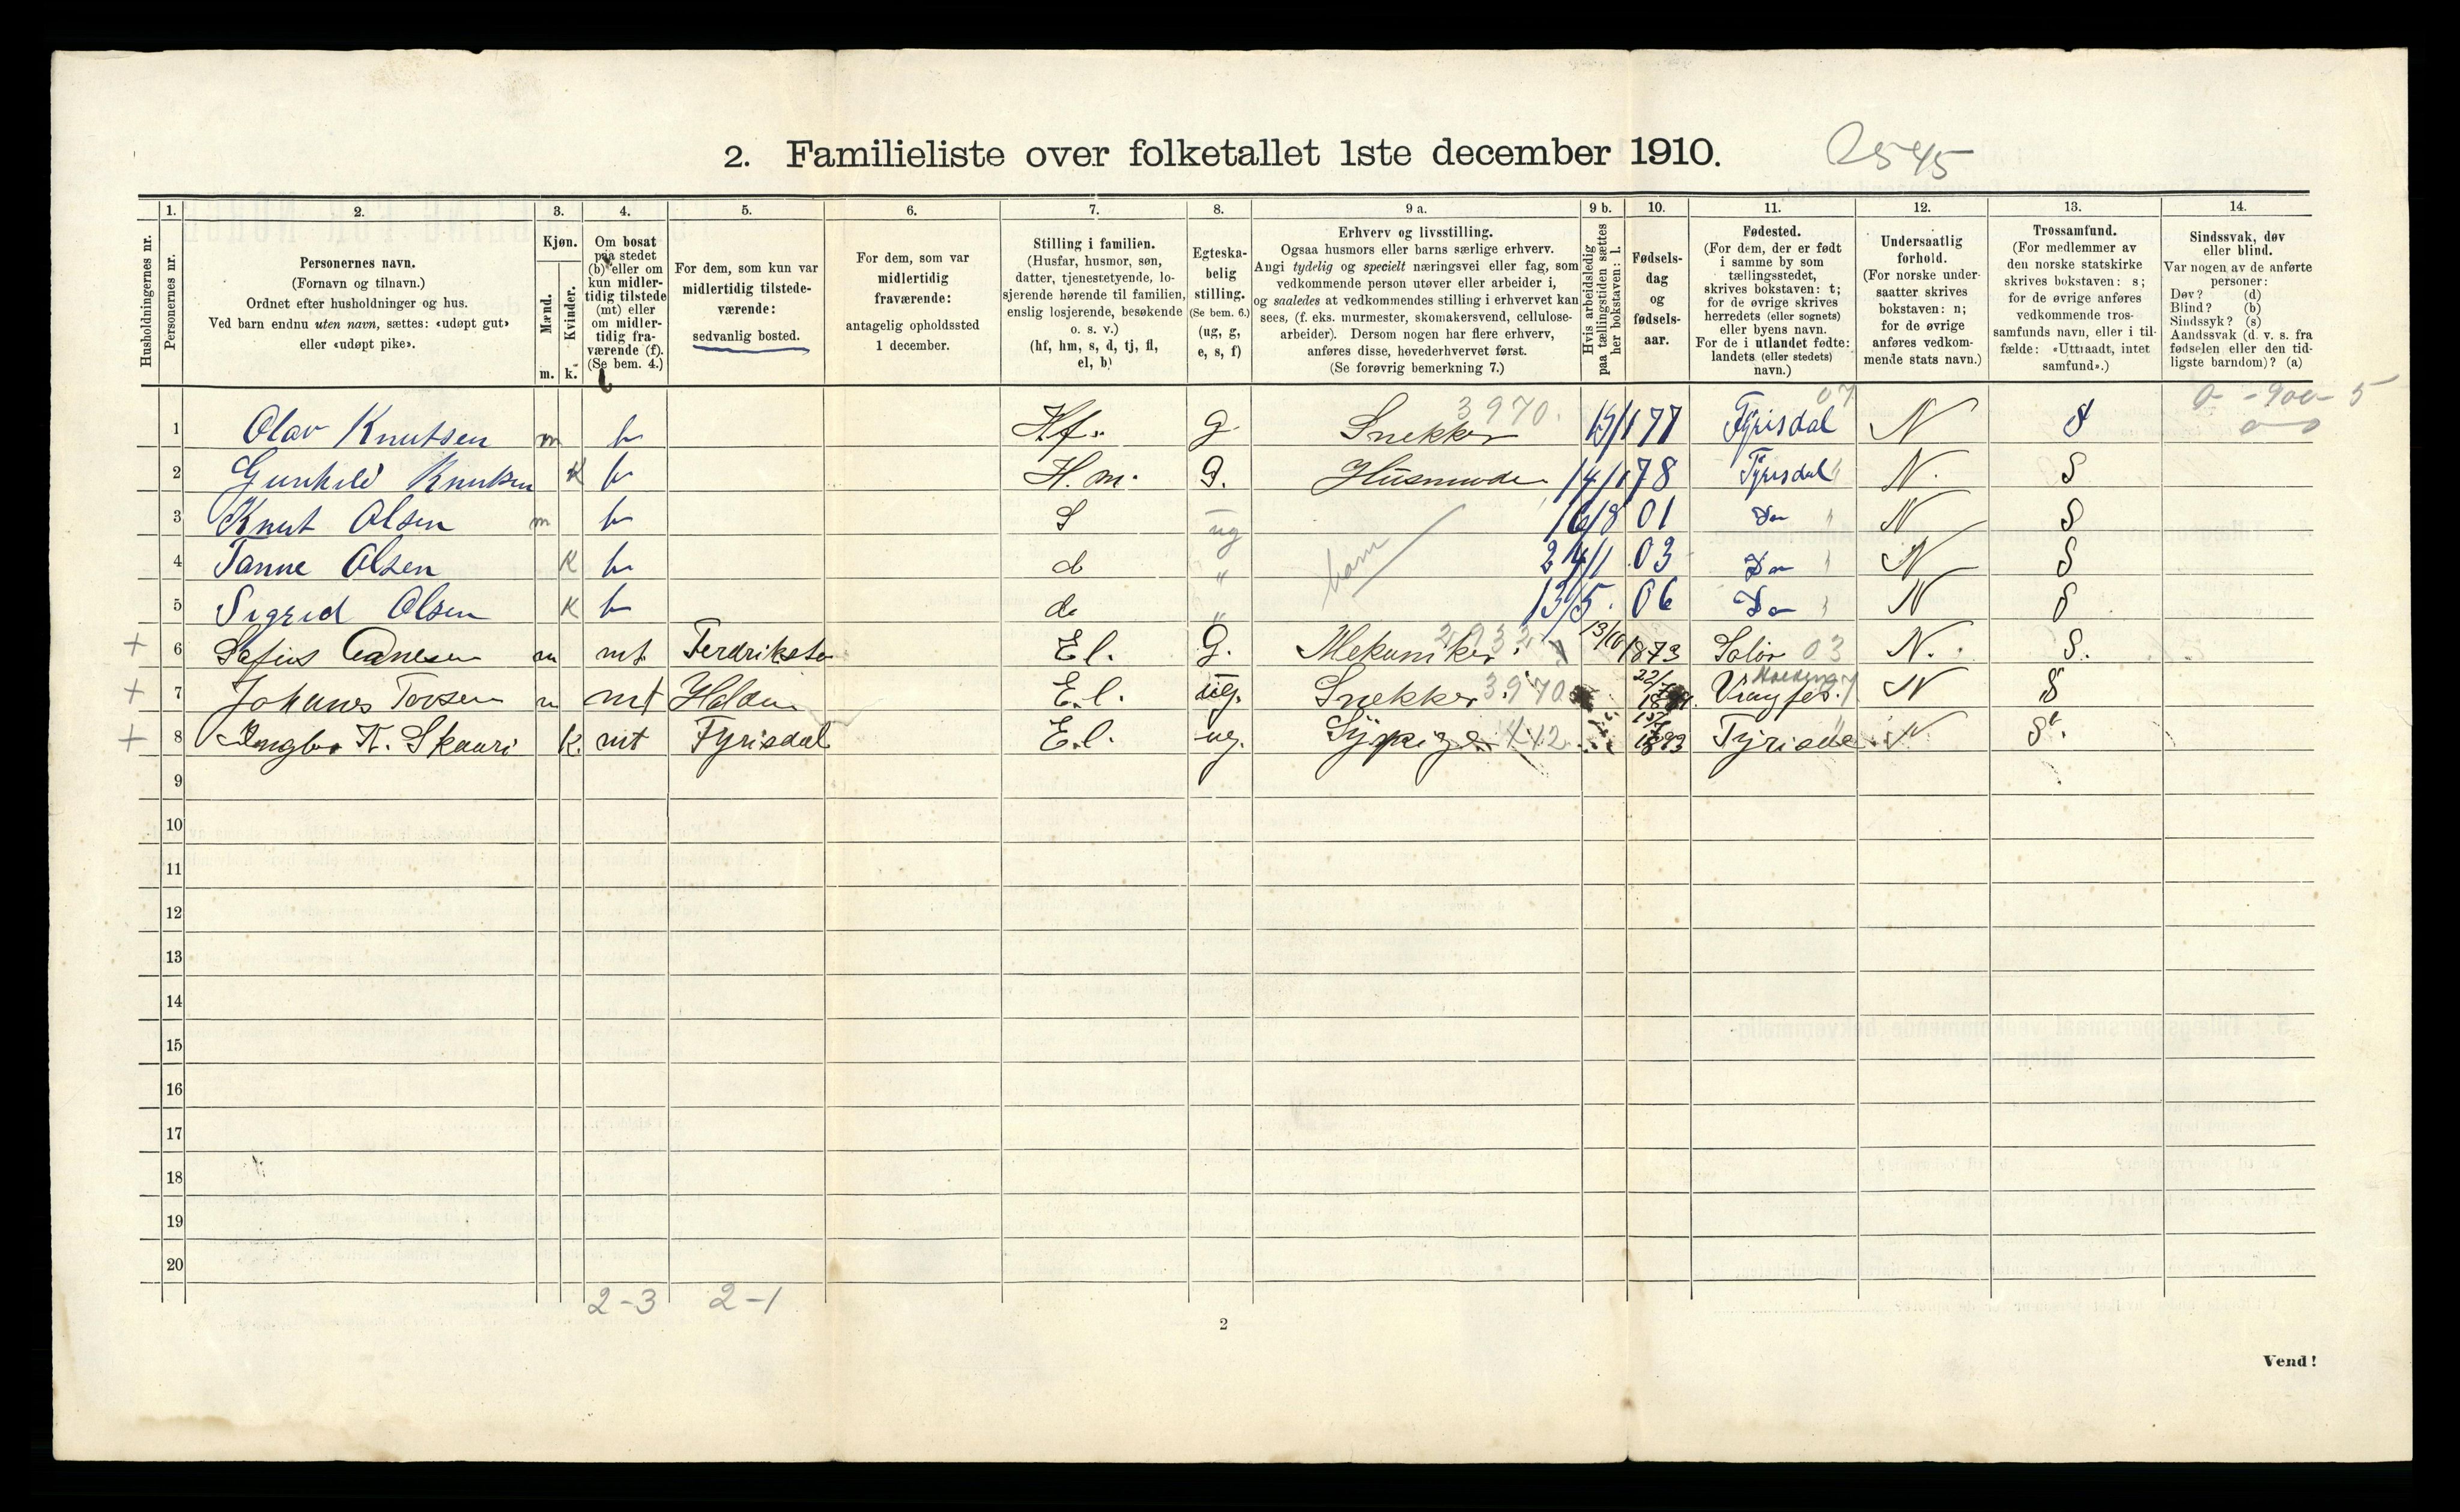 2. Familieliste over folketallet 1ste december 1910.
2545
Husholdningernes nr.
1. Personernes nr.
2. Personernes navn.
(Fornavn og tilnavn.)
Ordnet efter husholdninger og hus.
Ved barn endnu uten navn, sættes: «udøpt gut»
eller «udøpt pike».
3. Kjøn.
Mænd. m.
Kvinder. k.
4. Om bosat
paa stedet
(b) eller om
kun midler-
tidig tilstede
(mt) eller
om midler-
tidig fra-
værende (f).
(Se bem. 4.)
5. For dem, som kun var
midlertidig tilstede-
værende:
sedvanlig bosted.
6. For dem, som var
midlertidig
fraværende:
antagelig opholdssted
1 december.
7. Stilling i familien.
(Husfar, husmor, søn,
datter, tjenestetyende, lo-
sjerende hørende til familien,
enslig losjerende, besøkende
o. s. v.)
(hf, hm, s, d, tj, fl,
el, b)
8. Egteska-
belig
stilling.
(Se bem. 6.)
(ug, g,
e, s, f)
9 a. Erhverv og livsstilling.
Ogsaa husmors eller barns særlige erhverv.
Angi tydelig og specielt næringsvei eller fag, som
vedkommende person utøver eller arbeider i,
og saaledes at vedkommendes stilling i erhvervet kan
sees, (f. eks. murmester, skomakersvend, cellulose-
arbeider). Dersom nogen har flere erhverv,
anføres disse, hovederhvervet først.
(Se forøvrig bemerkning 7.)
9 b. Hvis arbeidsledig
paa tællingstiden sættes
her bokstaven: l.
10. Fødsels-
dag
og
fødsels-
aar.
11. Fødested.
(For dem, der er født
i samme by som
tællingsstedet,
skrives bokstaven: t;
for de øvrige skrives
herredets (eller sognets)
eller byens navn.
For de i utlandet fødte:
landets (eller stedets)
navn.)
12. Undersaatlig
forhold.
(For norske under-
saatter skrives
bokstaven: n;
for de øvrige
anføres vedkom-
mende stats navn.)
13. Trossamfund.
(For medlemmer av
den norske statskirke
skrives bokstaven: s;
for de øvrige anføres
vedkommende tros-
samfunds navn, eller i til-
fælde: «Uttraadt, intet
samfund».)
14. Sindssvak, døv
eller blind.
Var nogen av de anførte
personer:
Døv? (d)
Blind? (b)
Sindssyk? (s)
Aandssvak (d. v. s. fra
fødselen eller den tid-
ligste barndom)? (a)
1 Olav Knutsen m b Hf. g. Snekker 3970. 77 Fyrisdal 07 N S
2 Gunhild Knutsen K b H.m. G. Husmoder 14/1 78 Fyrisdal N. S
3 Knut Olsen m b S ug 16/8 01 Do N S
4 Tanne Olsen K b d " barn 24/1 03 Do N S
5 Sigrid Olsen K b d " 13/5. 06 Do N S
+ 6 m mt El. G. Mekaniker 13/10 1873 Solør 03 N. S.
+ 7 Johanes Torsen m mt Halden E.l. ug. Snekker 3970 N S
+ 8 K. mt Fyrisdal E.l. ug. Sypige 1893 N S.
9
10
11
12
13
14
15
16
17
18
19
20
2-3 2-1
2
Vend!